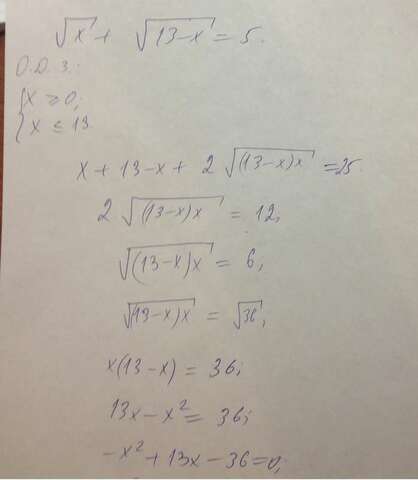 √x + √(13-x) = 5.
О.Д.З.:
{x ≥ 0;
{x ≤ 13.
x + 13 - x + 2√((13-x)x) = 25.
2√((13-x)x) = 12;
√((13-x)x) = 6;
√((13-x)x) = √36;
x(13-x) = 36;
13x - x² = 36;
-x² + 13x - 36 = 0;